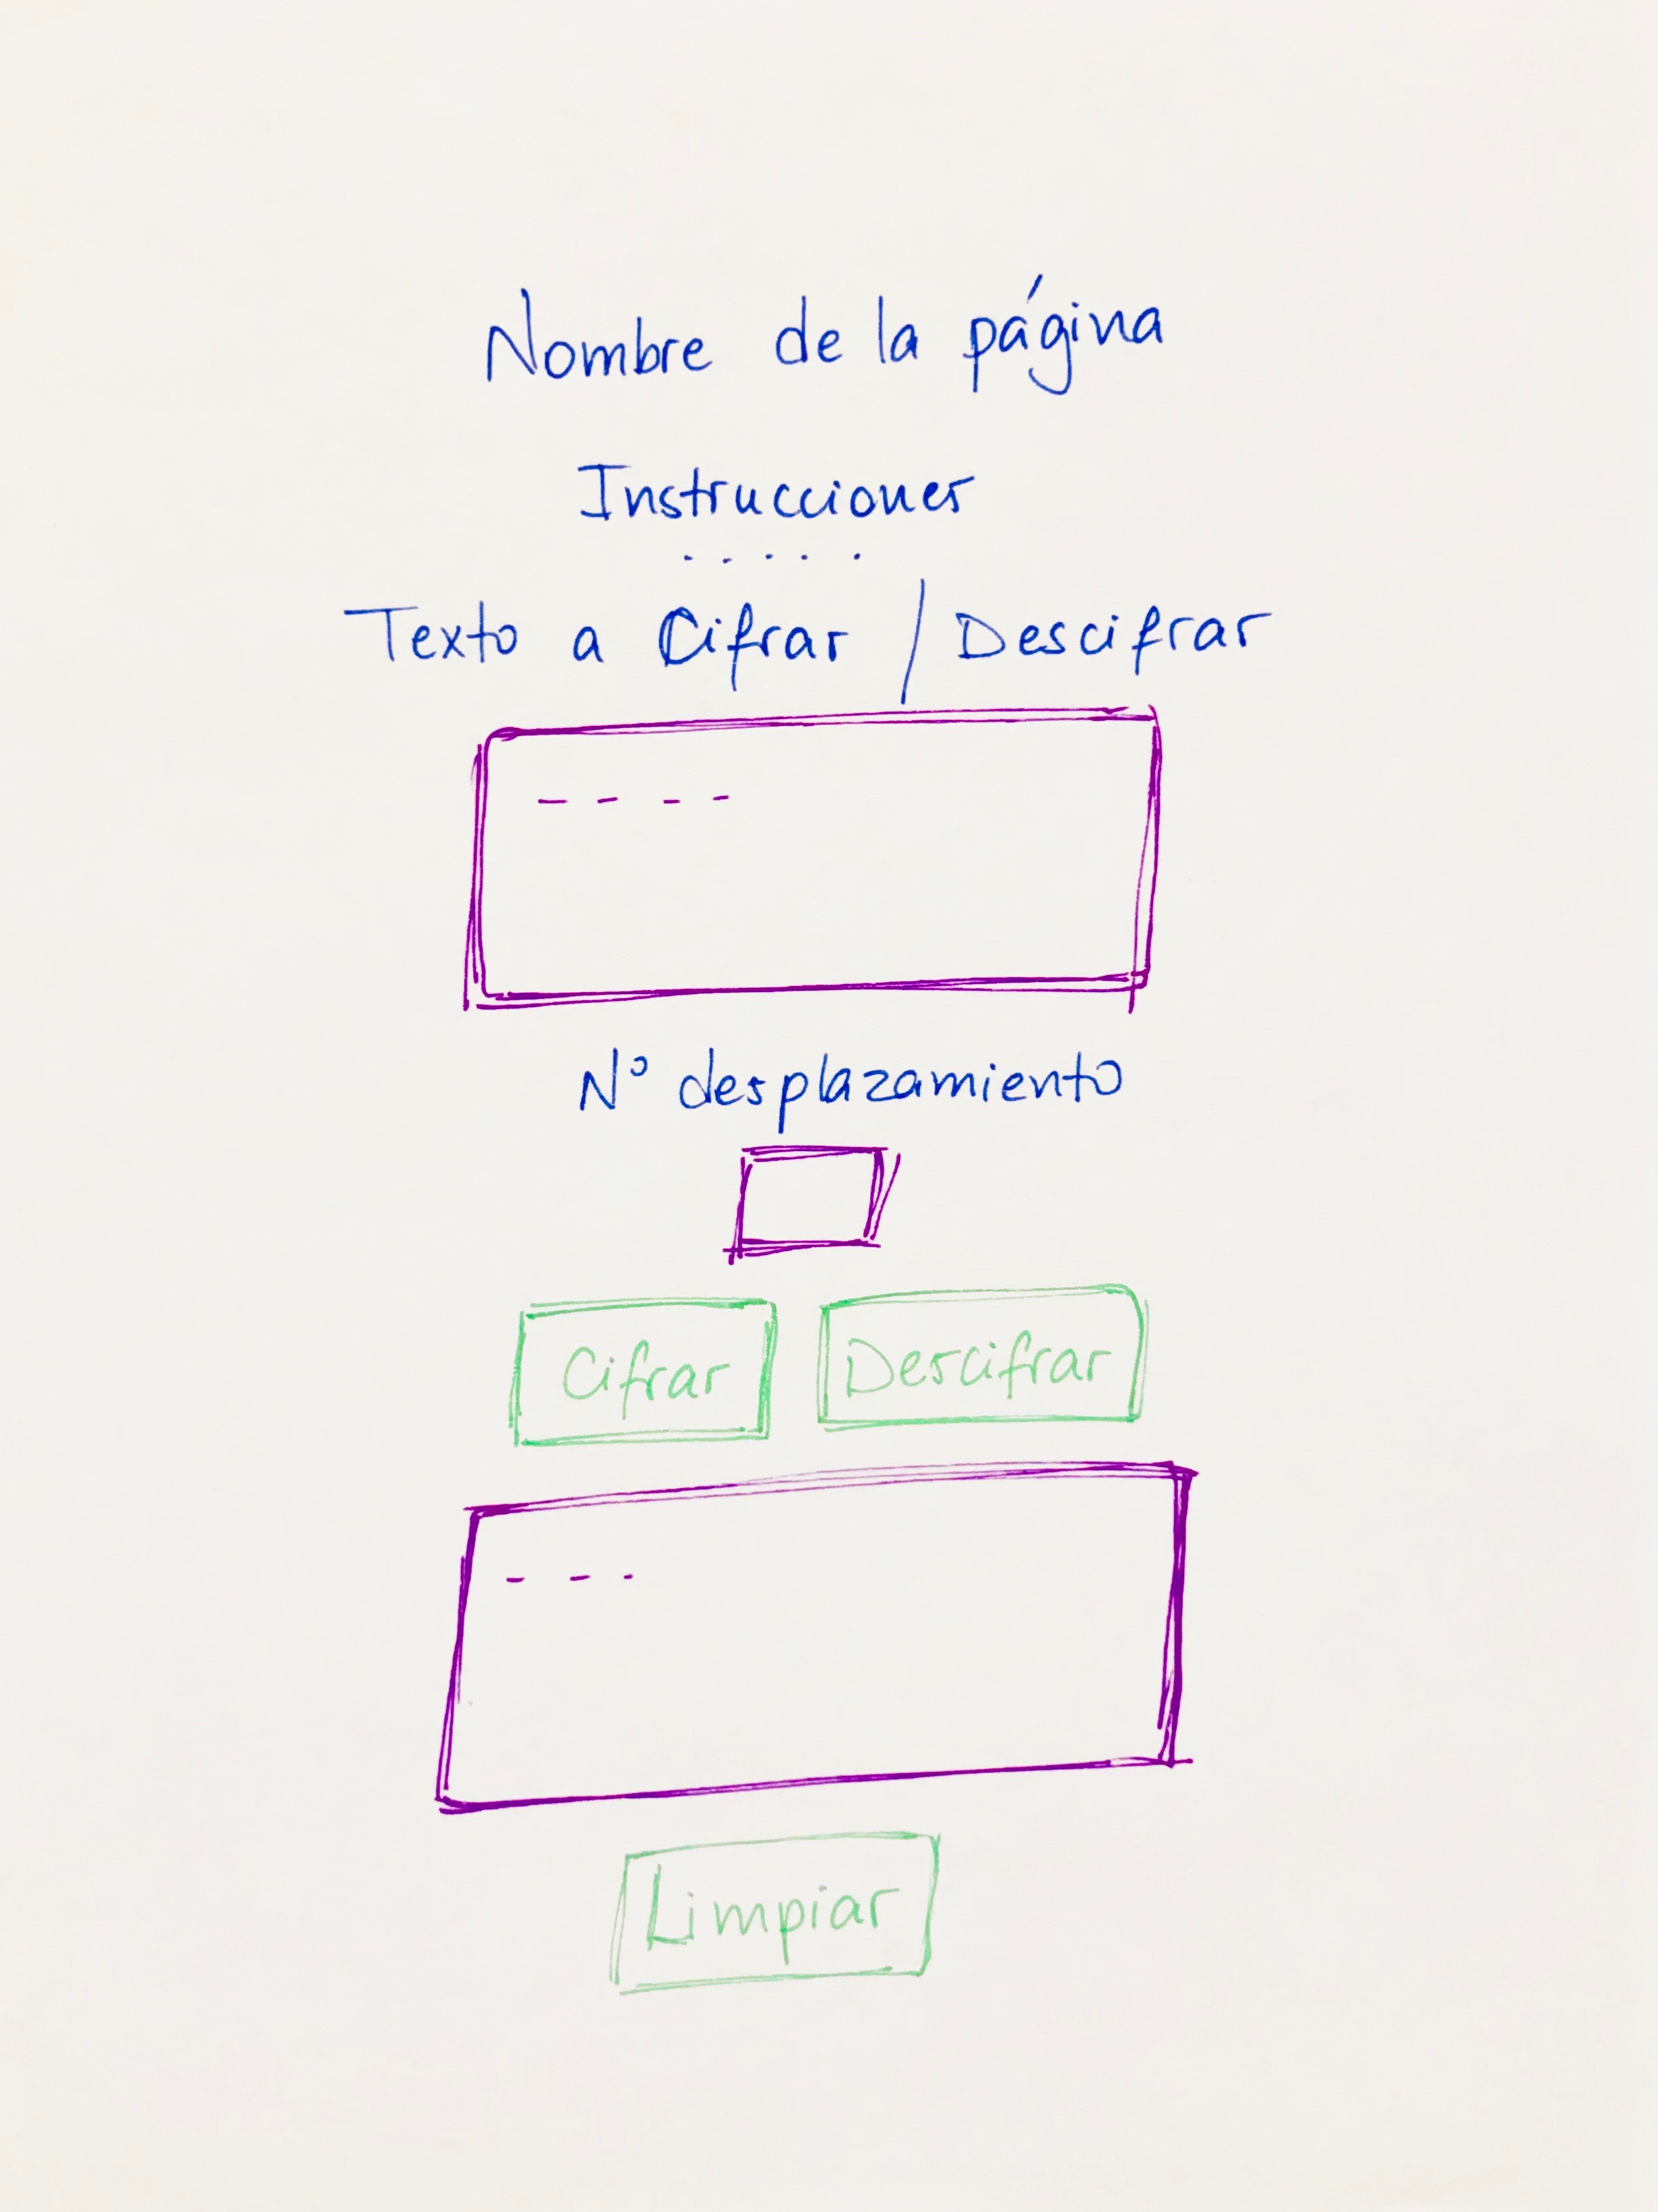 Nombre de la página
Instrucciones
. . . . .
Texto a Cifrar / Descifrar
- - - -
N° desplazamiento
Cifrar Descifrar
- - -
Limpiar